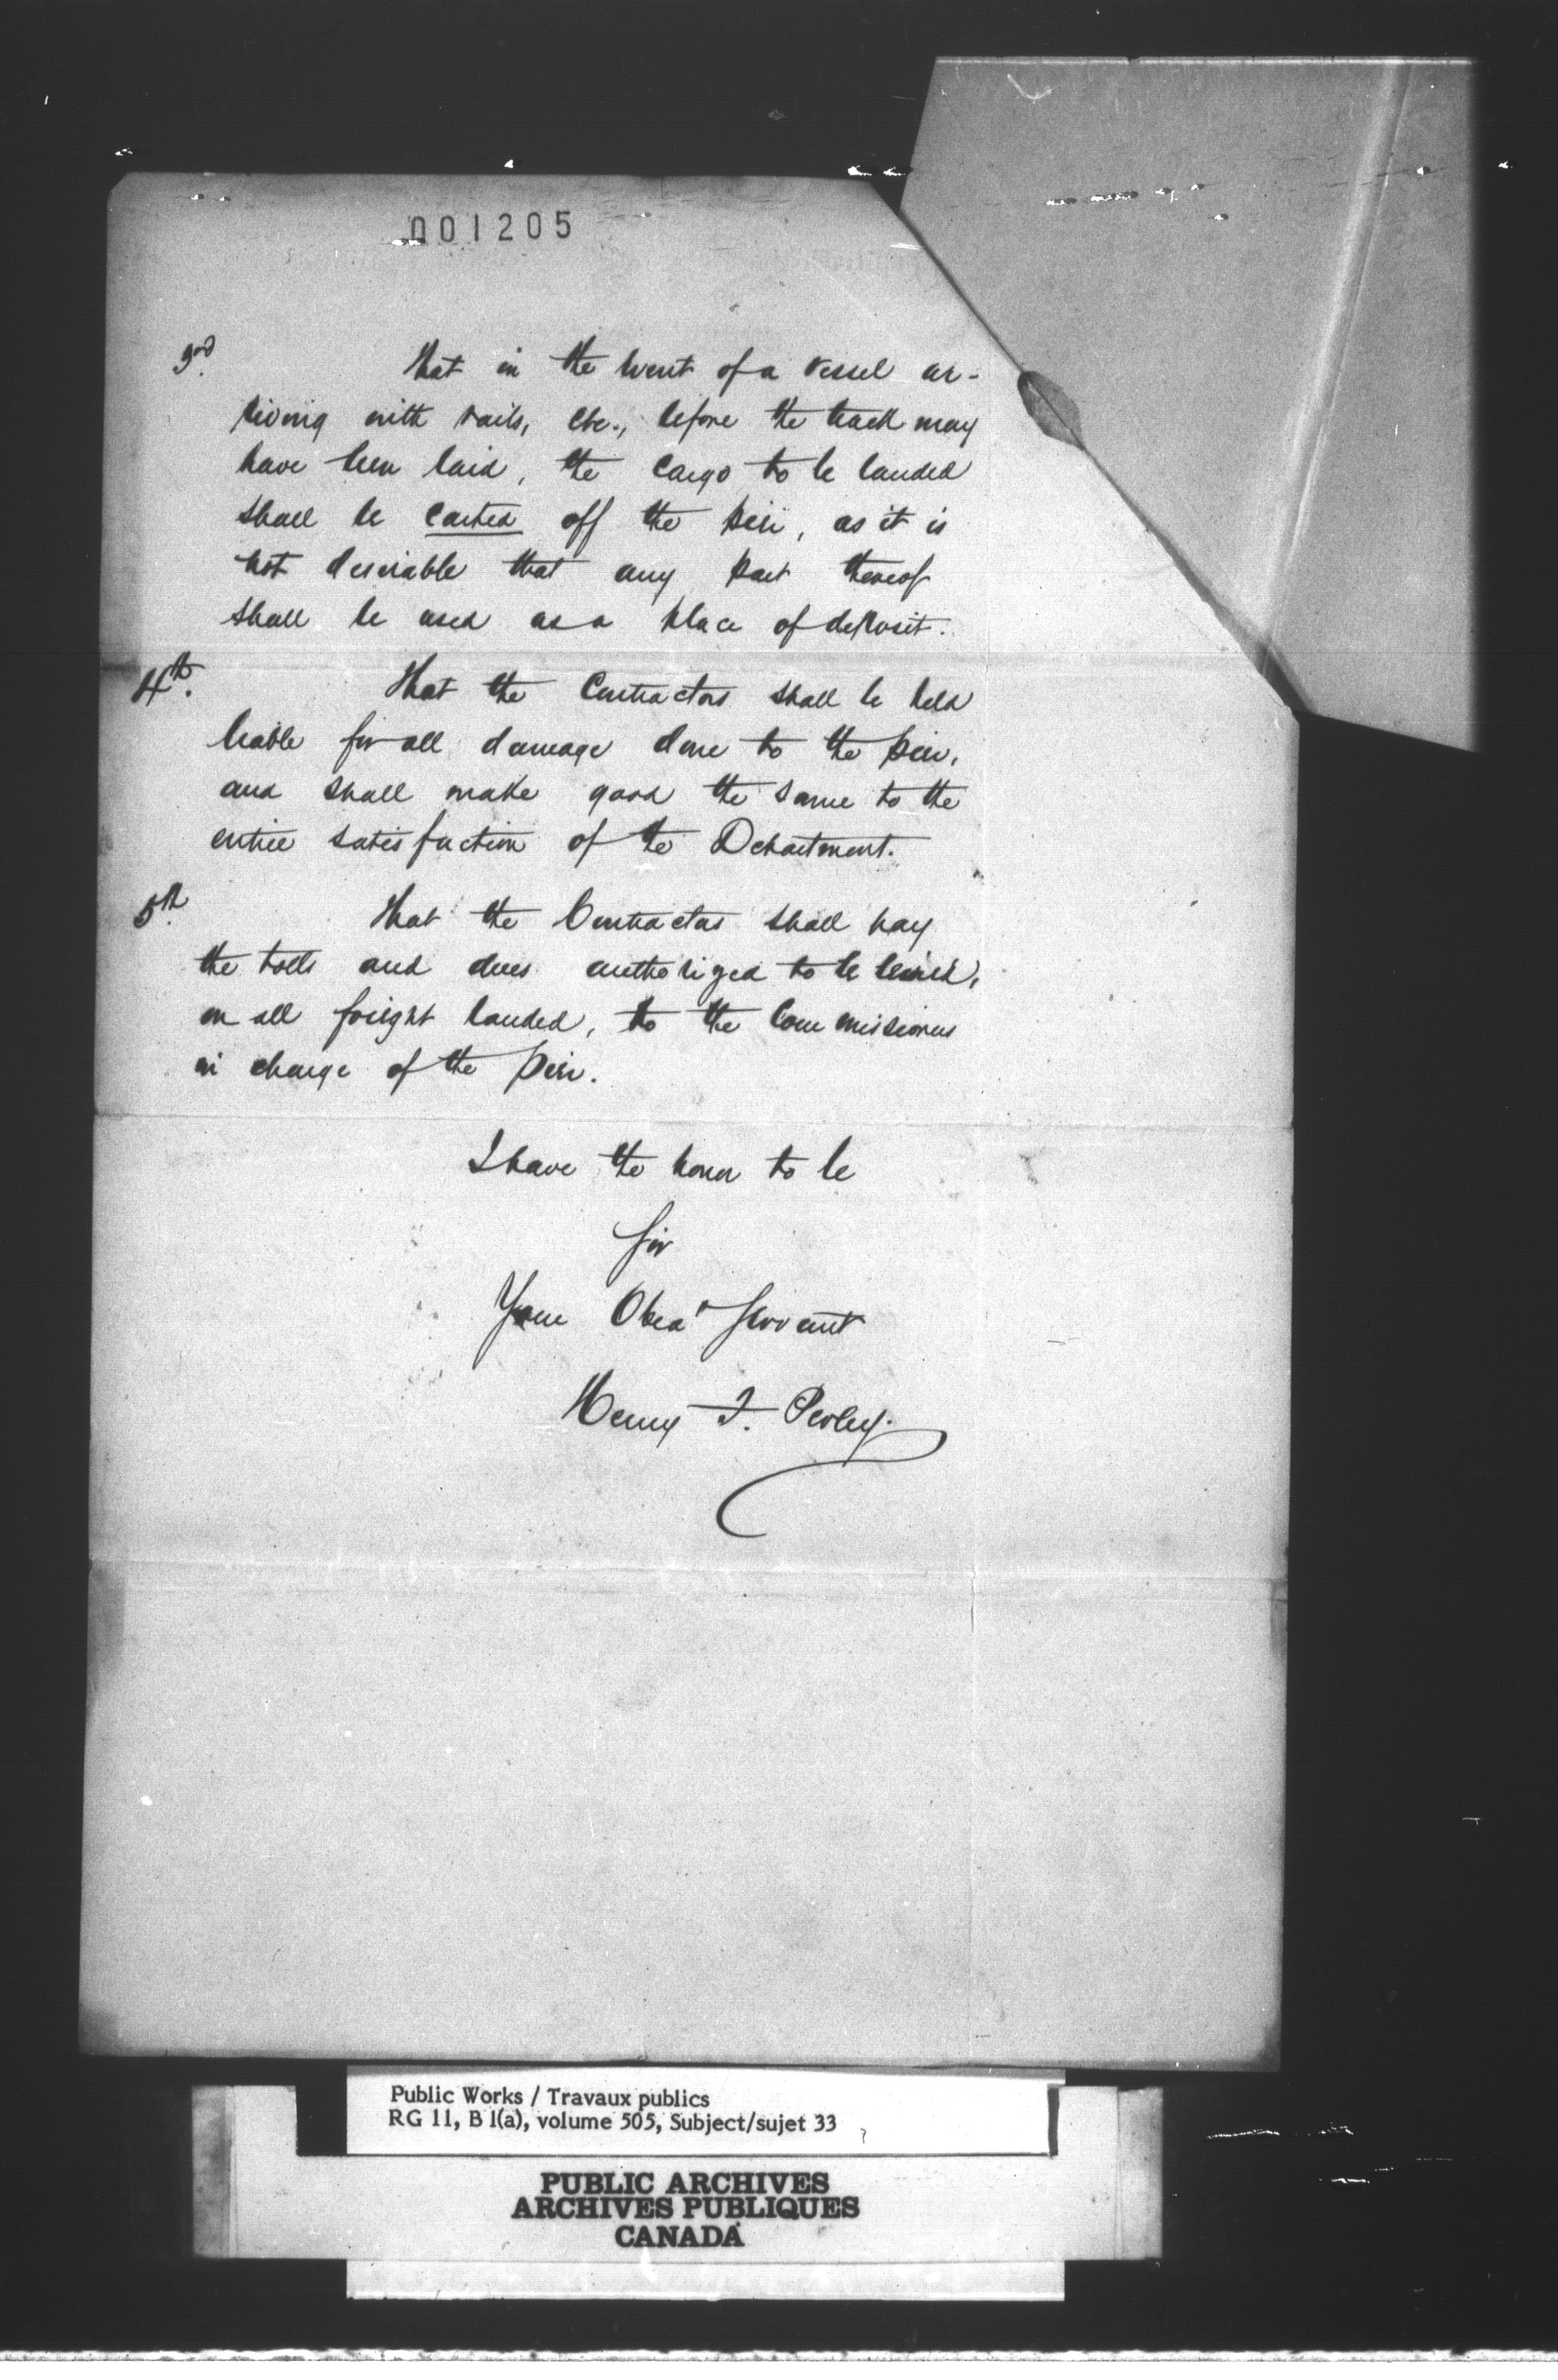 001205
3rd. That in the event of a vessel ar-
riving with rails, etc., before the track may
have been laid, the cargo to be landed
shall be carted off the pier, as it is
not desirable that any part thereof
shall be used as a place of deposit.
4th. That the Contractors shall be held
liable for all damage done to the pier,
and shall make good the same to the
entire satisfaction of the Department.
5th. That the Contractors shall pay
the tolls and dues authorized to be levied,
on all freight landed, to the Commissioners
in charge of the pier.
I have the honor to be
Sir
Your Obedt Servant
Henry F. Perley.
Public Works / Travaux publics
RG 11, B 1(a), volume 505, Subject/sujet 33
PUBLIC ARCHIVES
ARCHIVES PUBLIQUES
CANADA